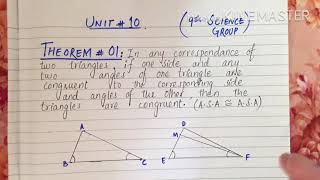 UNIT # 10.
(9th SCIENCE
GROUP)
KINEMASTER
THEOREM # 01: In any correspondance of
two triangles, if one side and any
two angles of one triangle are
congruent to the corresponding side
and angles of the other then the
triangles are congruent. (A.S.A ≅ A.S.A)
A
B
C
D
M
E
F